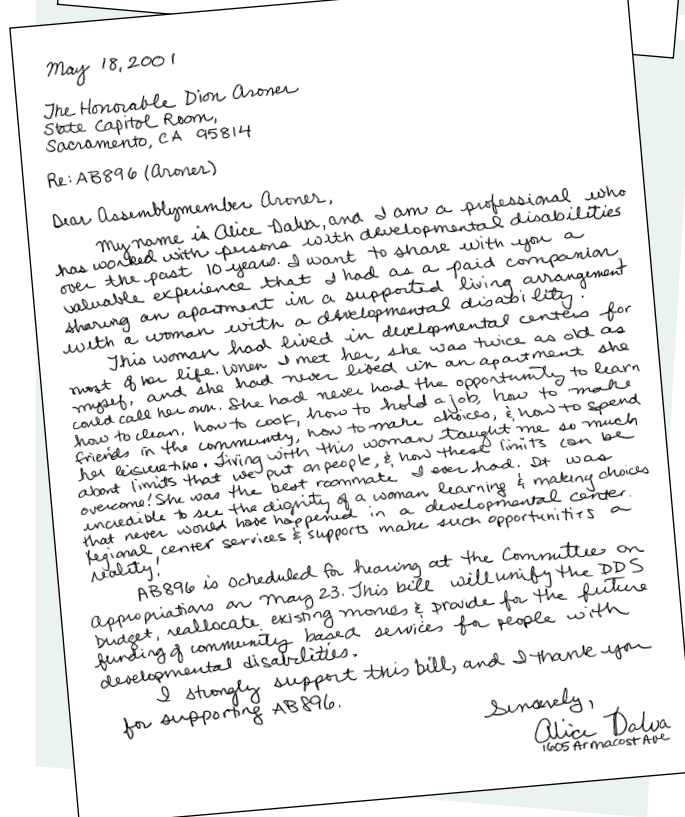 May 18, 2001
The Honorable Dion Aroner
State Capitol Room,
Sacramento, CA 95814
Re: AB896 (Aroner)
Dear Assemblymember Aroner,
My name is Alice Dalva, and I am a professional who
has worked with persons with developmental disabilities
over the past 10 years. I want to share with you a
valuable experience that I had as a paid companion
sharing an apartment in a supported living arrangement
with a woman with a developmental disability.
This woman had lived in developmental centers for
most of her life. When I met her, she was twice as old as
myself, and she had never lived in an apartment she
could call her own. She had never had the opportunity to learn
how to clean, how to cook, how to hold a job, how to make
friends in the community, how to make choices, & how to spend
her leisure time. Living with this woman taught me so much
about limits that we put on people, & how these limits can be
overcome! She was the best roommate I ever had. It was
incredible to see the dignity of a woman learning & making choices
that never would have happened in a developmental center.
Regional center services & supports make such opportunities a
reality!
AB896 is scheduled for hearing at the Committee on
Appropriations on May 23. This bill will unify the DDS
budget, reallocate existing monies & provide for the future
funding of community based services for people with
developmental disabilities.
I strongly support this bill, and I thank you
for supporting AB896.
Sincerely,
Alice Dalva
1605 Armacost Ave